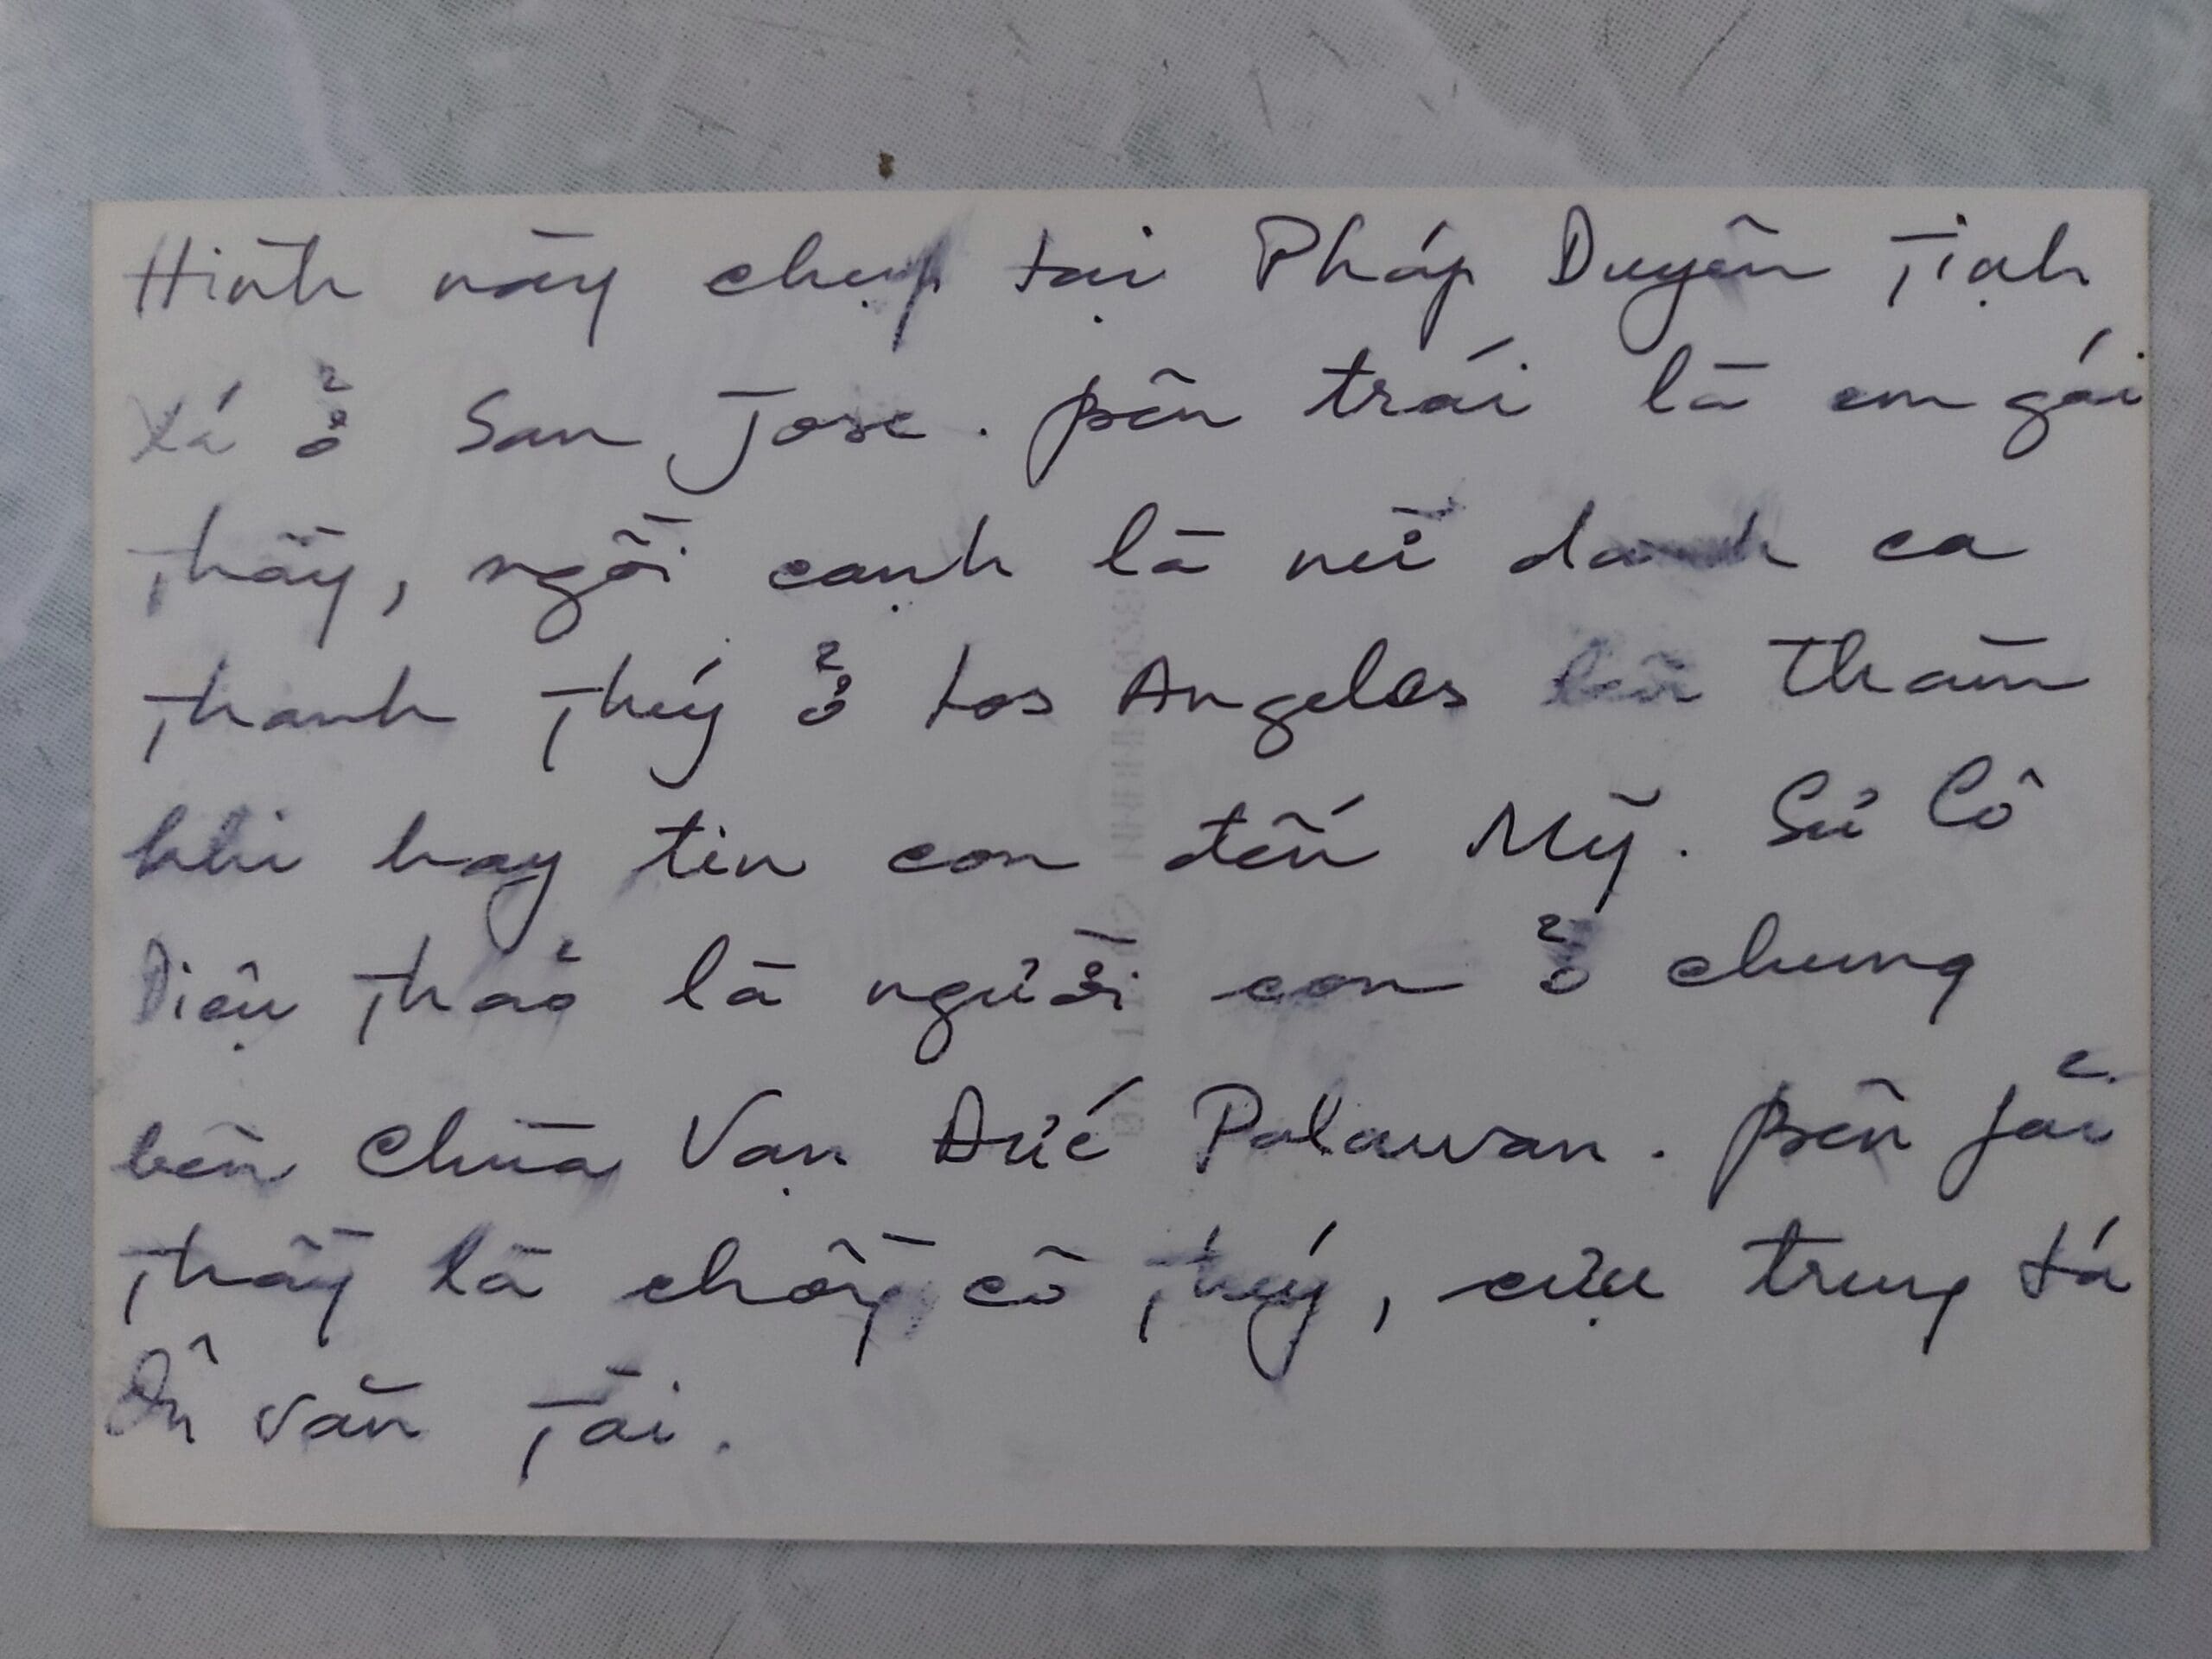 Hình này chụp tại Pháp Duyên Tịnh
Xá ở San Jose. Bên trái là em gái
Thầy, ngồi cạnh là nữ danh ca
Thanh Thúy ở Los Angeles lên thăm
khi hay tin con đến Mỹ. Sư Cô
Diệu Thảo là người con ở chung
bên Chùa Vạn Đức Palawan. Bên fải
Thầy là chồng cô Thúy, cựu trung tá
Ôn Văn Tài.